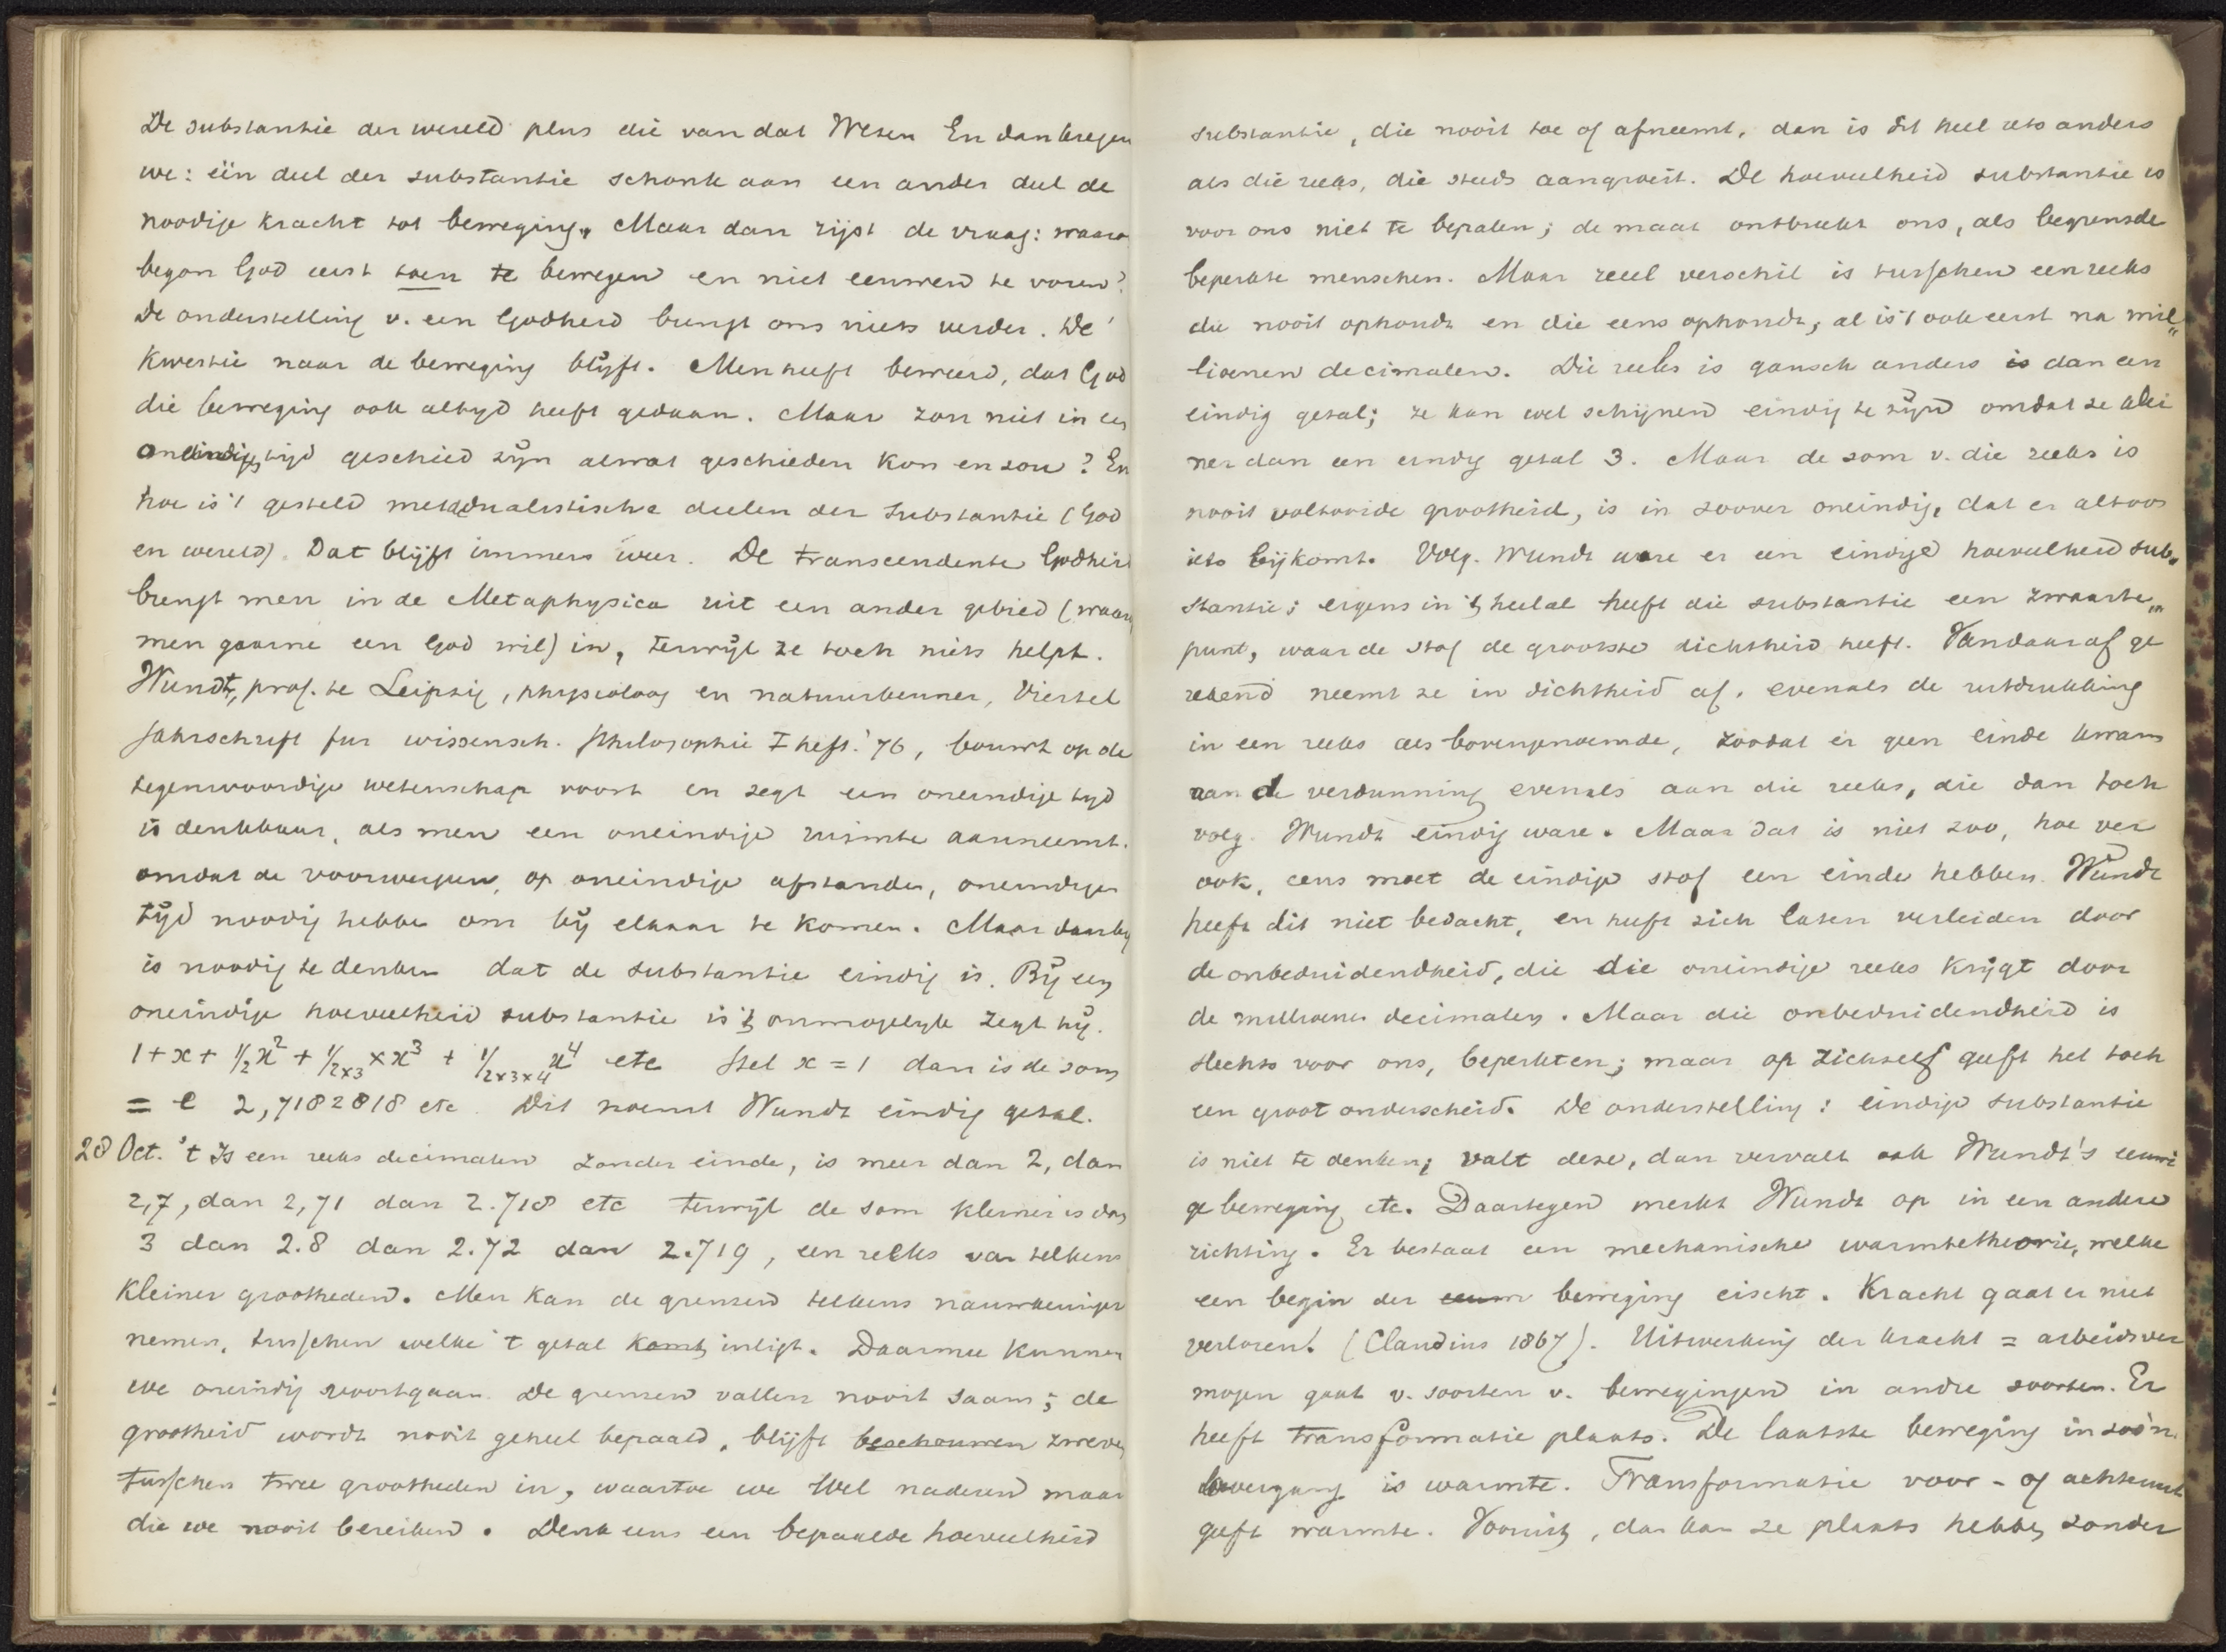 De substantie der wereld plus die van dat Wesen En dan kregen
we: één deel der substantie schonk aan een ander deel de
noodige kracht tot beweging. Maar dan rijst de vraag: waarom
begon God eerst toen te bewegen en niet eeuwen te voren?
De onderstelling v. een Godheid brengt ons niets verder. De
kwestie naar de beweging blijft. Men heeft beweerd, dat God
die beweging ook altijd heeft gedaan. Maar zou niet in een
oneindige tijd geschied zijn alwat geschieden kon en zou? En
hoe is 't gesteld met dualistische deelen der Substantie (God
en wereld). Dat blijft immers weer. De transcendente Godheid
brengt men in de Metaphysica uit een ander gebied (waar
men gaarne een God wil) in, terwijl ze toch niets helpt.
Wundt, prof. te Leipzig, physioloog en natuurkenner, Viertel
jahrschrift fur wissensch. Philosophie I heft. '76, bouwt op de
tegenwoordige wetenschap voort en zegt een oneindige tijd
is denkbaar, als men een oneindige ruimte aanneemt.
omdat de voorwerpen, op oneindige afstanden, oneindigen
tijd noodig hebben om bij elkaar te komen. Maar daarbij
is noodig te denken dat de substantie eindig is. Bij een
oneindige hoeveelheid substantie is 't onmogelijk zegt hij.
1 + x + 1/2 x² + 1/2×3 × x³ + 1/2×3×4 x⁴ etc Stel x = 1 dan is de som
= e 2,7182818 etc. Dit noemt Wundt eindig getal.
28 Oct. 't Is een reeks decimalen zonder einde, is meer dan 2, dan
2,7, dan 2,71 dan 2.718 etc terwijl de som kleiner is dan
3 dan 2.8 dan 2.72 dan 2.719, een reeks van telkens
kleiner grootheden. Men kan de grenzen telkens nauwkeuriger
nemen, tusschen welke 't getal komt inligt. Daarmee kunnen
we oneindig voortgaan. De grenzen vallen nooit saam; de
grootheid wordt nooit geheel bepaald, blijft beschouwen zweven
tusschen twee grootheden in, waartoe we wel naderen maar
die we nooit bereiken. Denk eens een bepaalde hoeveelheid
substantie, die nooit toe of afneemt, dan is dit heel iets anders
als die reeks, die steeds aangroeit. De hoeveelheid substantie is
voor ons niet te bepalen; de maat ontbreekt ons, als begrensde
beperkte menschen. Maar reeel verschil is tusschen een reeks
die nooit ophoudt en die eens ophoudt, al is 't ook eerst na mil„
lioenen decimalen. Die reeks is gansch anders is dan een
eindig getal; ze kan wel schijnen eindig te zijn omdat ze klei
ner dan een eindig getal 3. Maar de som v. die reeks is
nooit voltooide grootheid, is in zoover oneindig, dat er altoos
iets bijkomt. Volg. Wundt ware er een eindige hoeveelheid sub„
stantie; ergens in 't heelal heeft die substantie een zwaarte„
punt, waar de stof de grootste dichtheid heeft. Vandaaraf ge
rekend neemt ze in dichtheid af, evenals de uitdrukking
in een reeks als bovengenoemde, zoodat er geen einde kwam
aan de verdunning evenals aan die reeks, die dan toch
volg. Wundt eindig ware. Maar dat is niet zoo, hoe ver
ook, eens moet de eindige stof een einde hebben. Wundt
heeft dit niet bedacht, en heeft zich laten verleiden door
de onbeduidendheid, die die oneindige reeks krijgt door
de millioenen decimalen. Maar die onbeduidendheid is
slechts voor ons, beperkten; maar op zichself geeft het toch
een groot onderscheid. De onderstelling: eindige substantie
is niet te denken; valt deze, dan vervalt ook Wundt's eeuwi
ge beweging etc. Daartegen merkt Wundt op in een andere
richting. Er bestaat een mechanische warmtetheorie, welke
een begin der eeuw beweging eischt. Kracht gaat er niet
verloren! (Claudius 1867). Uitwerking der kracht = arbeidsver
mogen gaat v. soorten v. bewegingen in andre soorten. Er
heeft transformatie plaats. De laatste beweging in zoo'n
overgang is warmte. Transformatie voor- of achteruit
geeft warmte. Vooruit, dan kan ze plaats hebben zonder